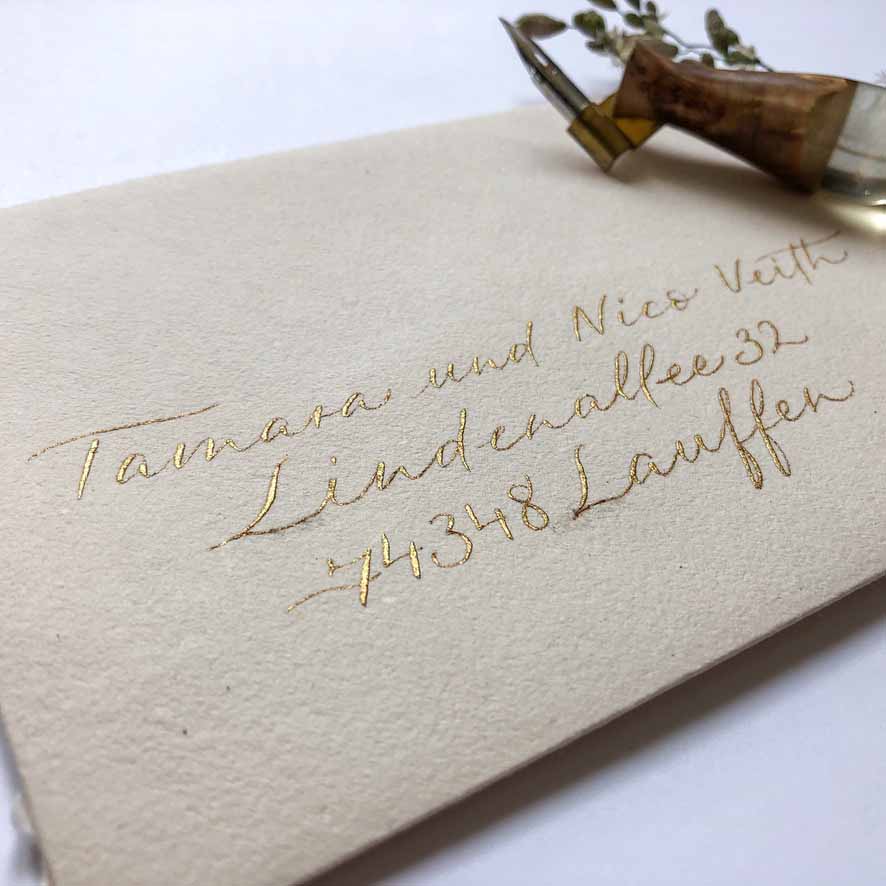 Tamara und Nico Veith
Lindenallee 32
74348 Lauffen